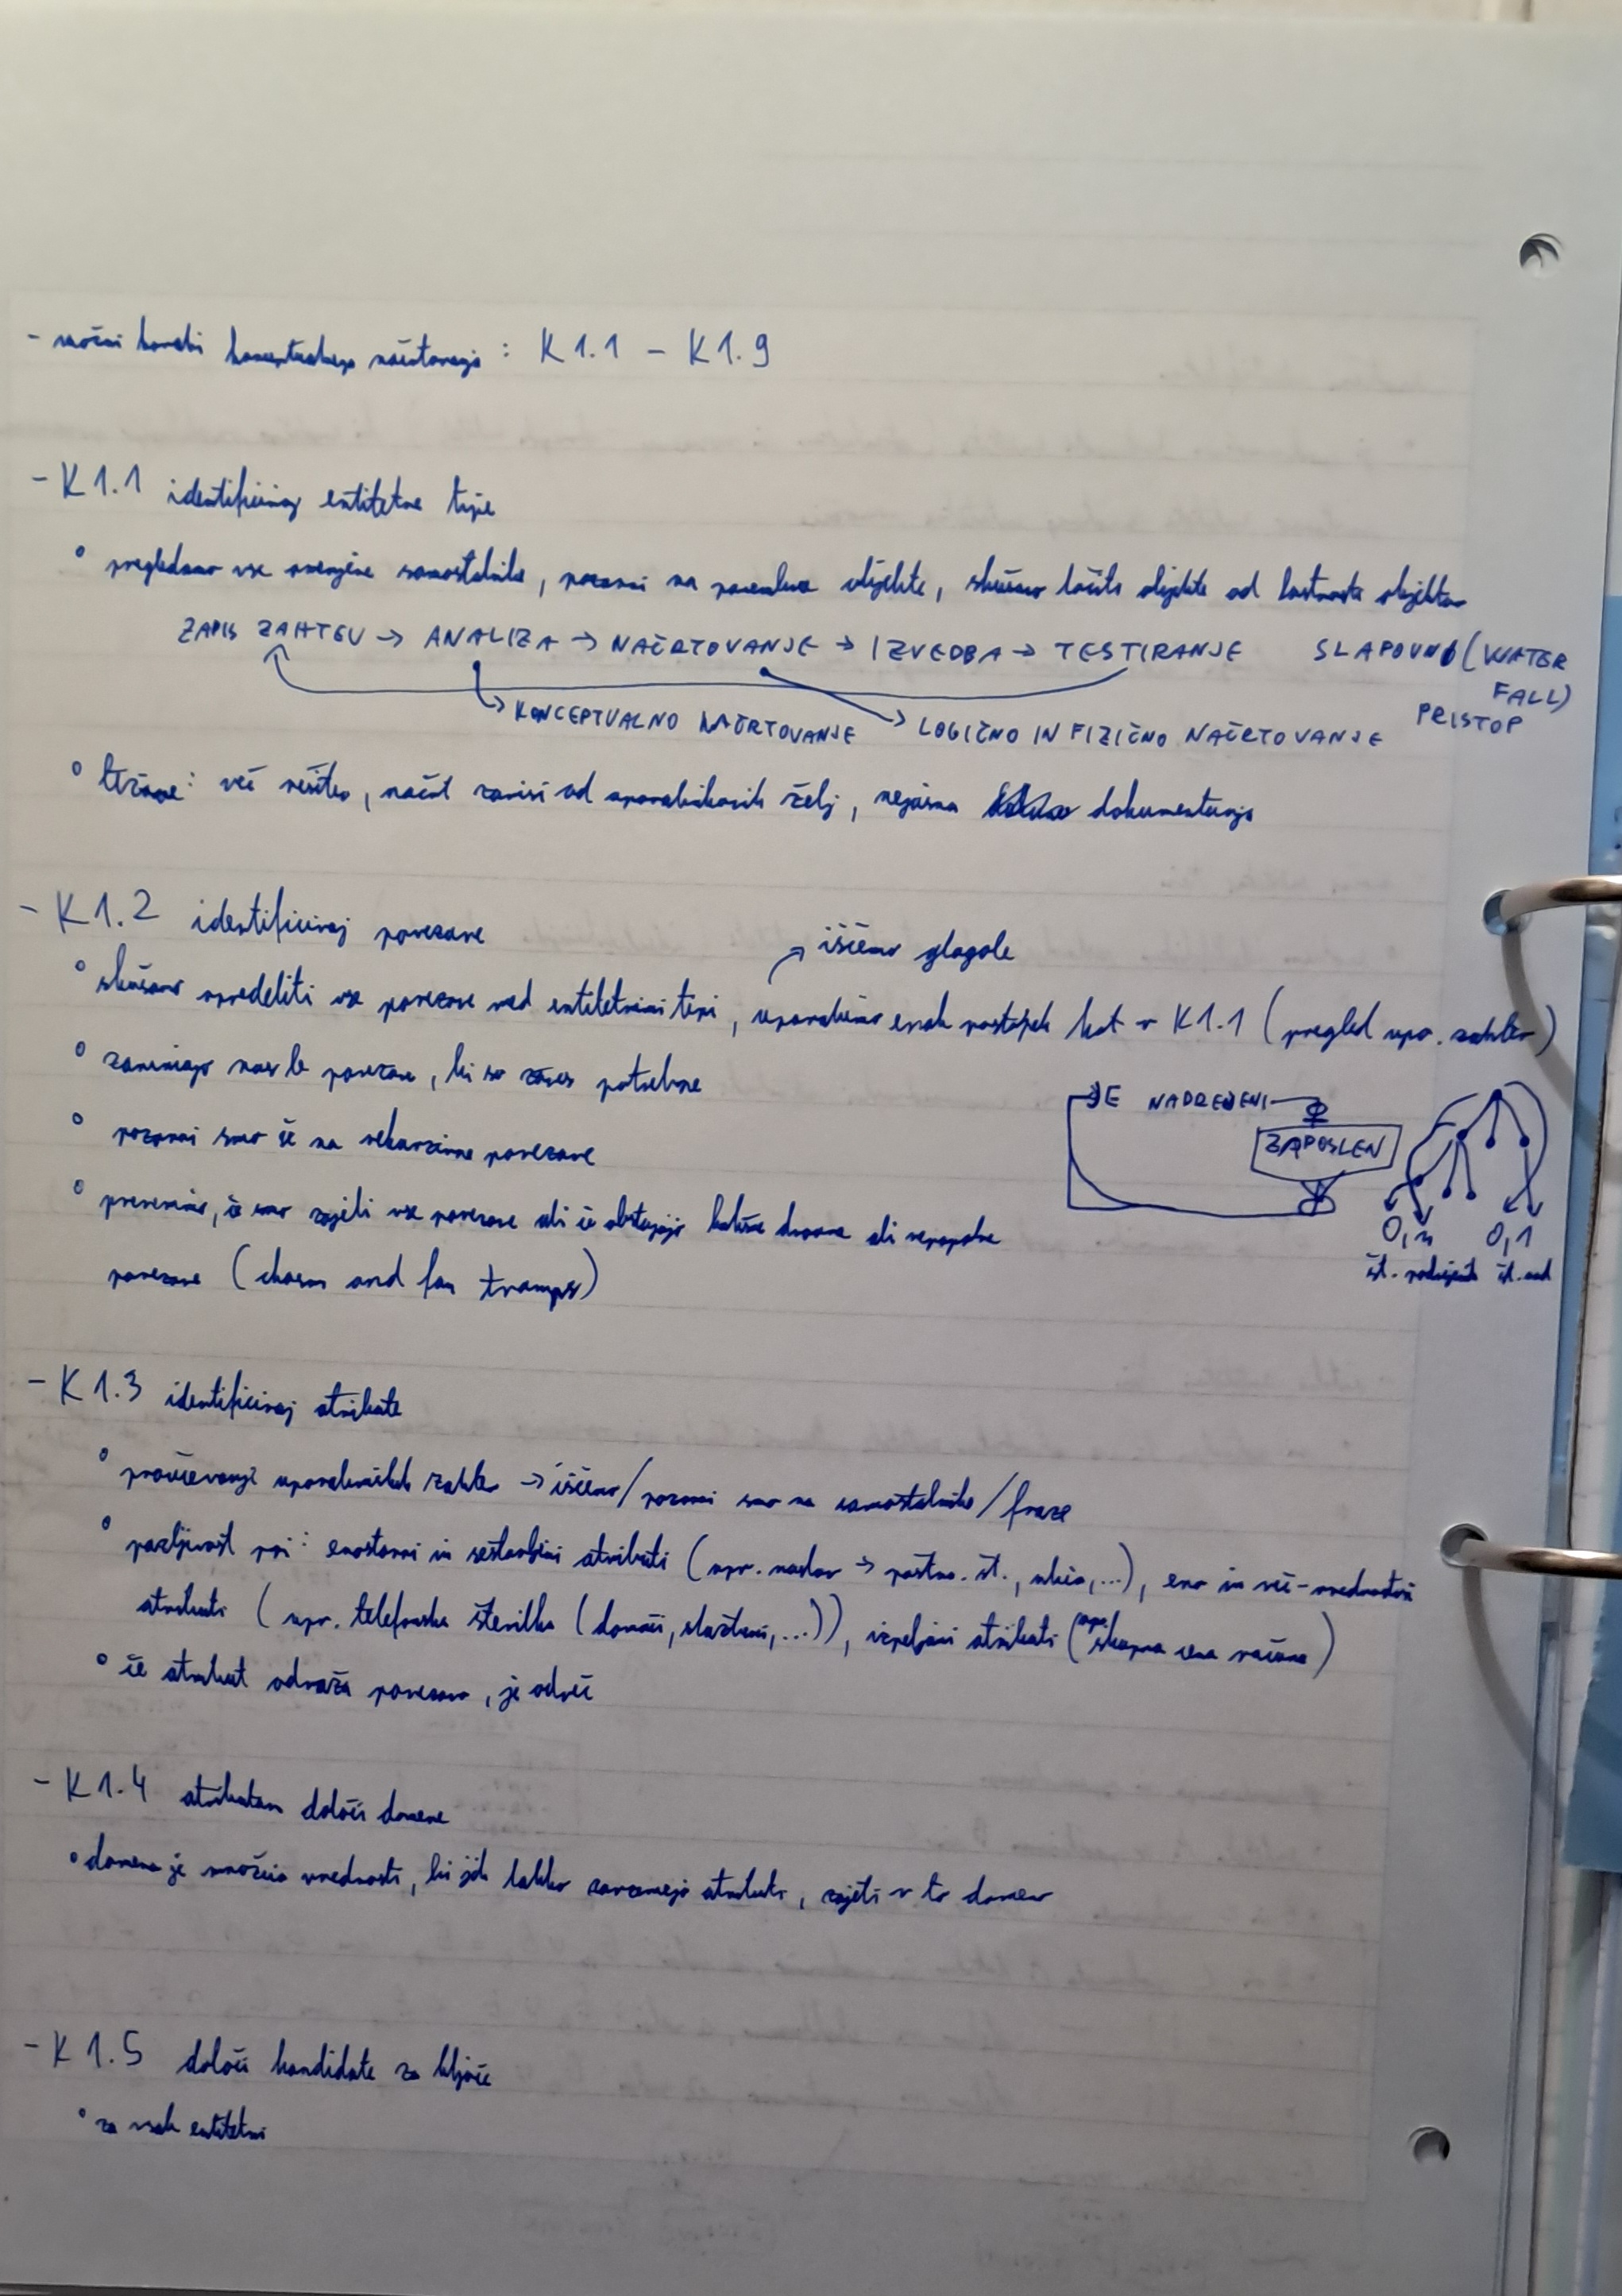 - možni koraki konceptualnega načrtovanja : K1.1 - K1.9
- K1.1 identificiraj entitetne tipe
° pregledamo vse omenjene samostalnike, pozorni na pomembne objekte, skušamo ločiti objekte od lastnosti objektov
ZAPIS ZAHTEV → ANALIZA → NAČRTOVANJE → IZVEDBA → TESTIRANJE SLAPOVNI (WATER
FALL)
PRISTOP
KONCEPTUALNO NAČRTOVANJE LOGIČNO IN FIZIČNO NAČRTOVANJE
° težave: več rešitev, načrt zavisi od uporabnikovih želj, nejasna dokumentacija
- K1.2 identificiraj povezave
→ iščemo glagole
° skušamo opredeliti vse povezave med entitetnimi tipi, uporabimo enak postopek kot v K1.1 (pregled upo. zahtev)
° zanimajo nas le povezave, ki so zares potrebne
° pozorni smo še na rekurzivne povezave
JE NADREJENI
ZAPOSLEN
° preverimo, če smo zajeli vse povezave ali če obstajajo kakšne dvoumne ali nepopolne
povezave (chasm and fan tramps)
0,n 0,1
št. podrejenih št. nad
- K1.3 identificiraj atribute
° proučevanje uporabniških zahtev → iščemo/pozorni smo na samostalnike/fraze
° pazljivost pri: enostavni in sestavljeni atributi (npr. naslov → poštna. št., ulica,...), eno in več-vrednostni
atributi (npr. telefonska številka (domači, službeni,...)), izpeljani atributi (npr. skupna cena računa)
° če atribut odraža povezavo, je odveč
- K1.4 atributom določi domene
° domena je množica vrednosti, ki jih lahko zavzemejo atributi, zajeti v to domeno
- K1.5 določi kandidate za ključe
° za vsak entitetni